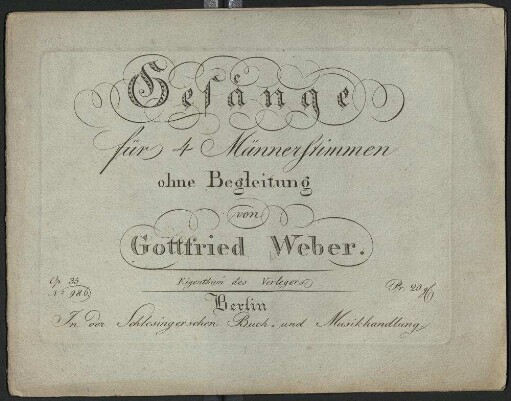 Gesänge
für 4 Männerstimmen
ohne Begleitung
von
Gottfried Weber.
Op. 35
Nº 986
Eigenthum des Verlegers
Pr. 20
Berlin
In der Schlesingerschen Buch- und Musikhandlung